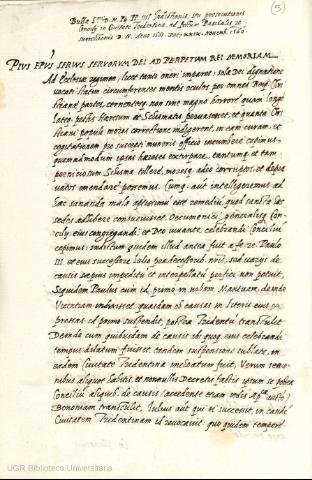 (5)
Bulla S.mi D. N. PP. IIII Indictionis seu prosecutionis
Concilij in Civitate Tridentina ad festum Paschalis re
surrectionis D. N. Anno 1561. Dat. XXIX. Novemb. 1560.
PIVS EPVS SERVVS SERVORVM DEI AD PERPETVAM REI MEMORIAM.
Ad Ecclesiæ regimen, licet tanto oneri impares, sola Dei dignatione
vocati statim circumferentes mentis oculos per omnes Reip. Chri
stianæ partes, cernentesq. non sine magno horrore quam longe
lateq. pestis Hæresum et Schismatis pervasisset, et quanta Chri
stiani populi mores correctione indigerent, in eam curam, et
cogitationem pro suscepti muneris officio incumbere cœpimus
quemadmodum ipsas hæreses extirpare, tantumq. et tam
perniciosum Schisma tollere, moresq. adeo corruptos, et depra
vatos emendare possemus. Cumq. aut intelligeremus ad
hæc sananda mala aptissimum esse remedium, quod sancta hæc
sedes adhibere consuevisset Œcumenici, generalisq. Con
cilij, eius congregandi, et Deo iuvante, celebrandi consilium
cepimus, indictum quidem illud antea fuit a fe. re. Paulo
III. et eius successore Iulio prædecessorib. nris, sed varijs de
causis sæpius impeditum et interpellatum perfici non potuit,
Siquidem Paulus cum id primo in urbem Mantuam, deinde
Vicentiam indixisset, quasdam ob causas in literis eius ex
pressas id primo suspendit, postea Tridentum transtulit
Deinde cum quibusdam de causis ibi quoq. eius celebrandi
tempus dilatum fuisset, tandem suspensione sublata, in
eadem Civitate Tridentina inchoatum fuit, Verum sessio
nibus aliquot habitis, et nonnullis Decretis factis ipsum se postea
Concilium aliquib. de causis (accedente etiam sedis Ap.cæ aucte)
Bononiam transtulit, Iulius aut qui ei successit, in eandē
Civitatem Tridentinam id revocavit, quo quidem tempore
UGR Biblioteca Universitaria